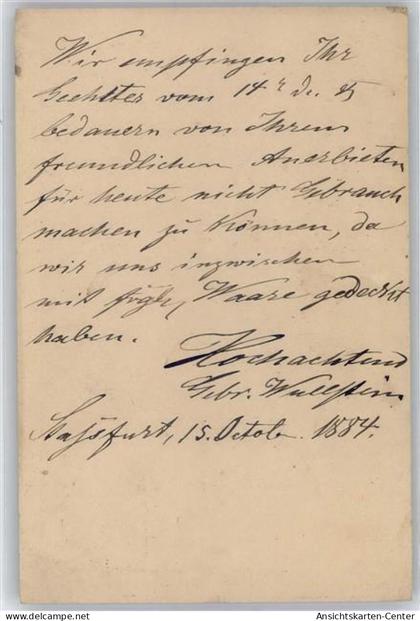 Wir empfingen Ihr
Geehrtes vom 14r ds. &
bedauern von Ihrem
freundlichen Anerbieten
für heute nicht Gebrauch
machen zu können, da
wir uns inzwischen
mit Waare gedeckt
haben.
Hochachtend
Gebr. Wullstein
Stassfurt, 15. Octob. 1884.
Ansichtskarten-Center